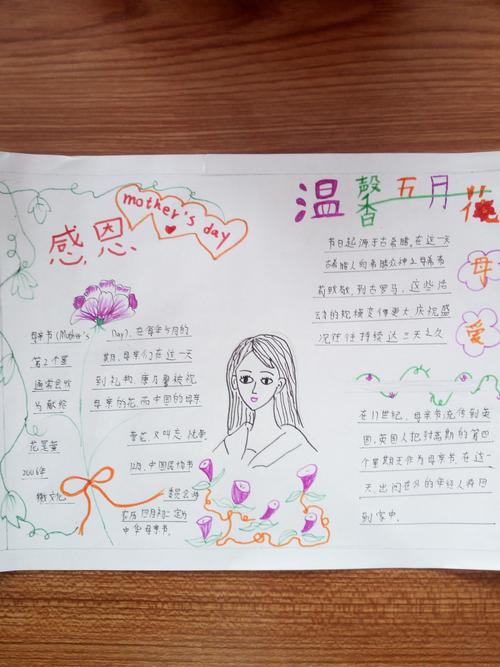 mother's day
感恩
温馨五月花
母爱
节日起源于古希腊,在这一天
古希腊人向希腊众神之母赫拉
致敬,到古罗马,这些活
动的规模变得更大,庆祝盛
况往往持续达三天之久
在17世纪,母亲节流传到英
国,英国人把封斋期的第四
个星期天作为母亲节.在这一
天,出门在外的年轻人将回
到家中.
母亲节(Mother's Day),在每年5月的
第2个星期,母亲们在这一天
通常会收到礼物,康乃馨被视
为献给母亲的花,而中国的母亲
花是萱草花,又叫忘忧草
2006年12月,中国民俗书
农历四月初二定为
中华母亲节.